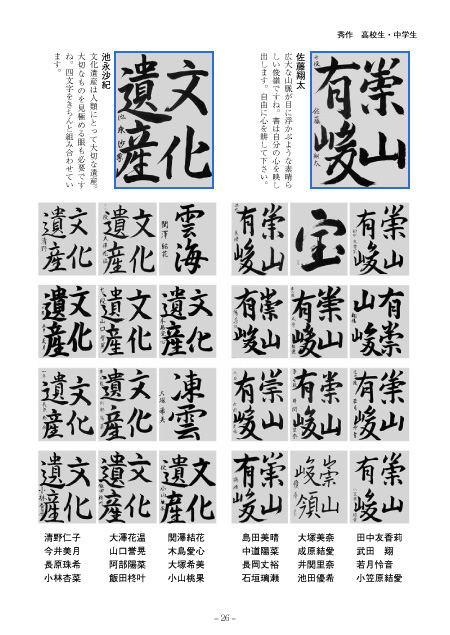 秀作 高校生・中学生
崇山
有峻
佐藤翔太
広大な山脈が目に浮かぶような素晴ら
しい俊嶺ですね。書は自分の心を映し
出します。自由に心を耕して下さい。
文化
遺産
池永沙紀
文化遺産は人類にとって大切な遺産。
大切なものを見極める眼も必要です
ね。四文字をきちんと組み合わせてい
ます。
崇山
有峻
宝
崇山
有峻
崇山
有峻
崇山
有峻
崇山
有峻
崇山
有峻
崇山
有峻
崇山
有峻
崇山
峻領
崇山
有峻
雲海
関澤結花
文化
遺産
文化
遺産
文化
遺産
文化
遺産
文化
遺産
凍雲
大塚希美
文化
遺産
文化
遺産
文化
遺産
文化
遺産
文化
遺産
田中友香莉
武田 翔
若月怜音
小笠原結愛
大塚美奈
成原結愛
井関里奈
池田優希
島田美晴
中道陽菜
長岡丈裕
石垣璃瀬
関澤結花
木島愛心
大塚希美
小山桃果
大澤花温
山口誉晃
阿部陽菜
飯田柊叶
清野仁子
今井美月
長原珠希
小林杏菜
- 26 -